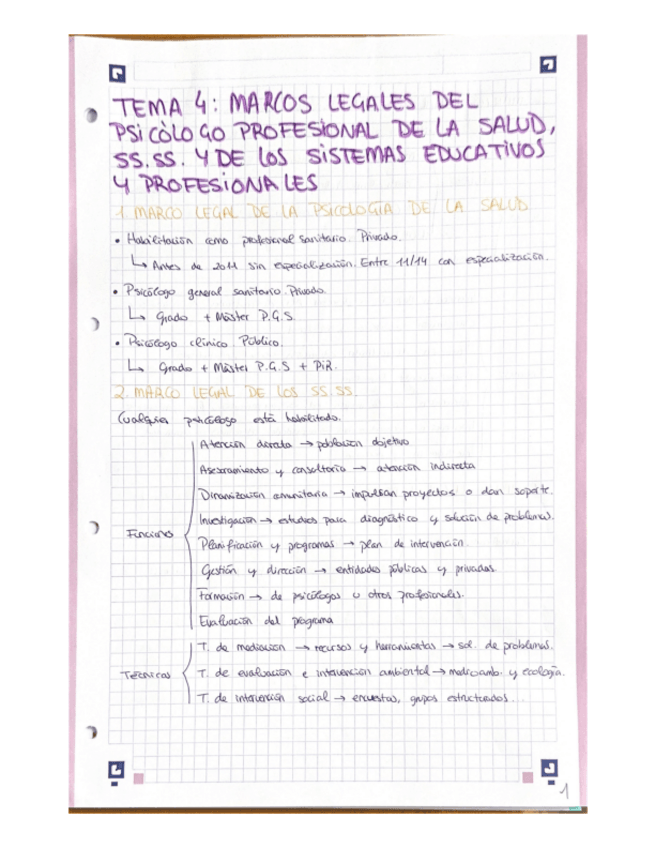 TEMA 4: MARCOS LEGALES DEL
PSICÒLOGO PROFESIONAL DE LA SALUD,
SS.SS. Y DE LOS SISTEMAS EDUCATIVOS
Y PROFESIONALES
1. MARCO LEGAL DE LA PSICOLOGÍA DE LA SALUD
• Habilitación como profesional sanitario. Privado.
↳ Antes de 2011 sin especialización. Entre 11/14 con especialización.
• Psicólogo general sanitario. Privado.
↳ Grado + Máster P.G.S.
• Psicólogo clínico Público.
↳ Grado + Máster P.G.S + PIR.
2. MARCO LEGAL DE LOS SS.SS.
Cualquier psicólogo está habilitado.
Atención directa → población objetivo
Asesoramiento y consultoría → atención indirecta
Dinamización comunitaria → impulsan proyectos o dan soporte.
Investigación → estudios para diagnóstico y solución de problemas.
Funciones
Planificación y programas → plan de intervención.
Gestión y dirección → entidades públicas y privadas.
Formación → de psicólogos u otros profesionales.
Evaluación del programa
T. de mediación → recursos y herramientas → sol. de problemas.
Técnicas
T. de evaluación e intervención ambiental → medioamb. y ecología.
T. de intervención social → encuestas, grupos estructurados.
1